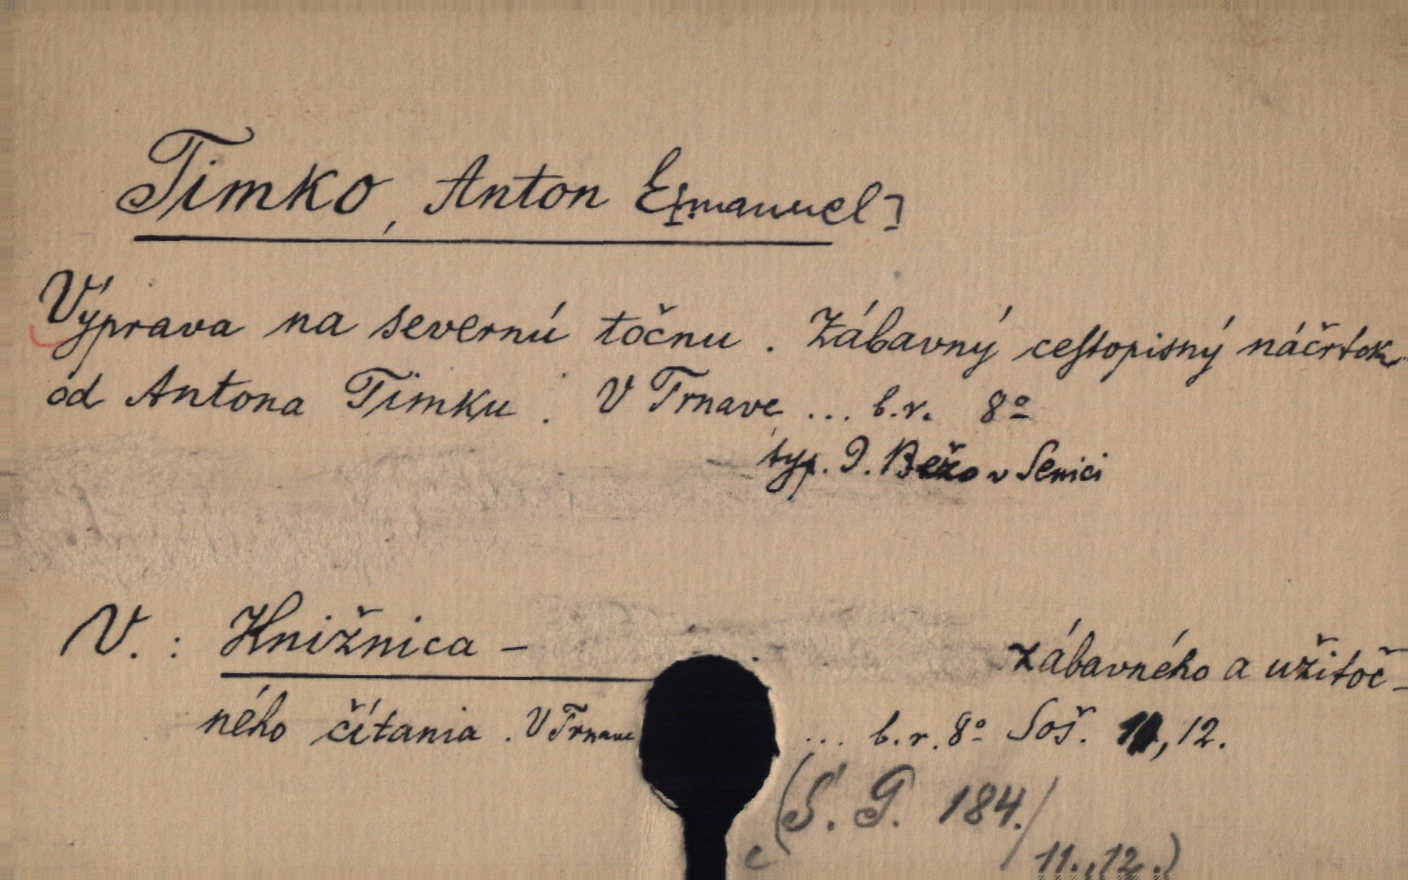 Timko, Anton E[manuel]
Výprava na severnú točnu. Zábavný cestopisný náčrtok
od Antona Timku. V Trnave ... b.r. 8º
typ. J. Bežo v Senici
V.: Knižnica – zábavného a užitoč-
ného čítania. V Trnave ... b.r. 8º Soš. 11, 12.
(S. G. 184./
11., 12.)